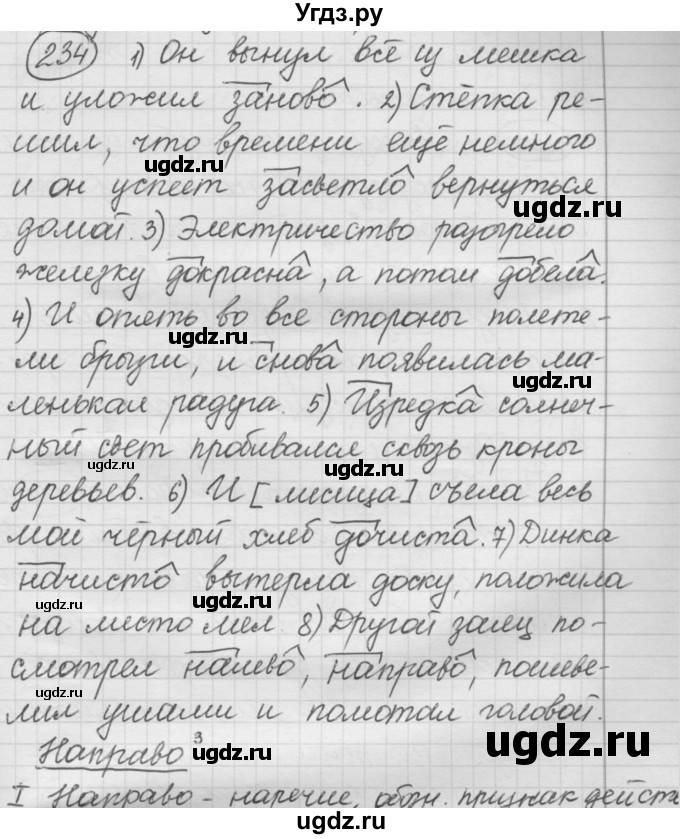 Угдз.ру
234 1) Он вынул всё из мешка
и уложил заново. 2) Стёпка ре-
шил, что времени ещё немного
ugdz.ru
и он успеет засветло вернуться
ugdz.ru
домой. 3) Электричество разогрело
железку докрасна, а потом добела.
ugdz.ru
4) И опять во все стороны полете-
ли брызги, и снова появилась ма-
ugdz.ru
ленькая радуга. 5) Изредка солнеч-
ный свет пробивался сквозь кроны
ugdz.ru ugdz.ru
деревьев. 6) И [лисица] съела весь
мой чёрный хлеб дочиста. 7) Динка
ugdz.ru
начисто вытерла доску, положила
ugdz.ru ugdz.ru
на место мел. 8) Другой заяц по-
смотрел налево, направо, пошеве-
ugdz.ru
лил ушами и помотал головой.
Направо³
ugdz.ru
I Направо - наречие, обозн. признак действ
ugdz.ru